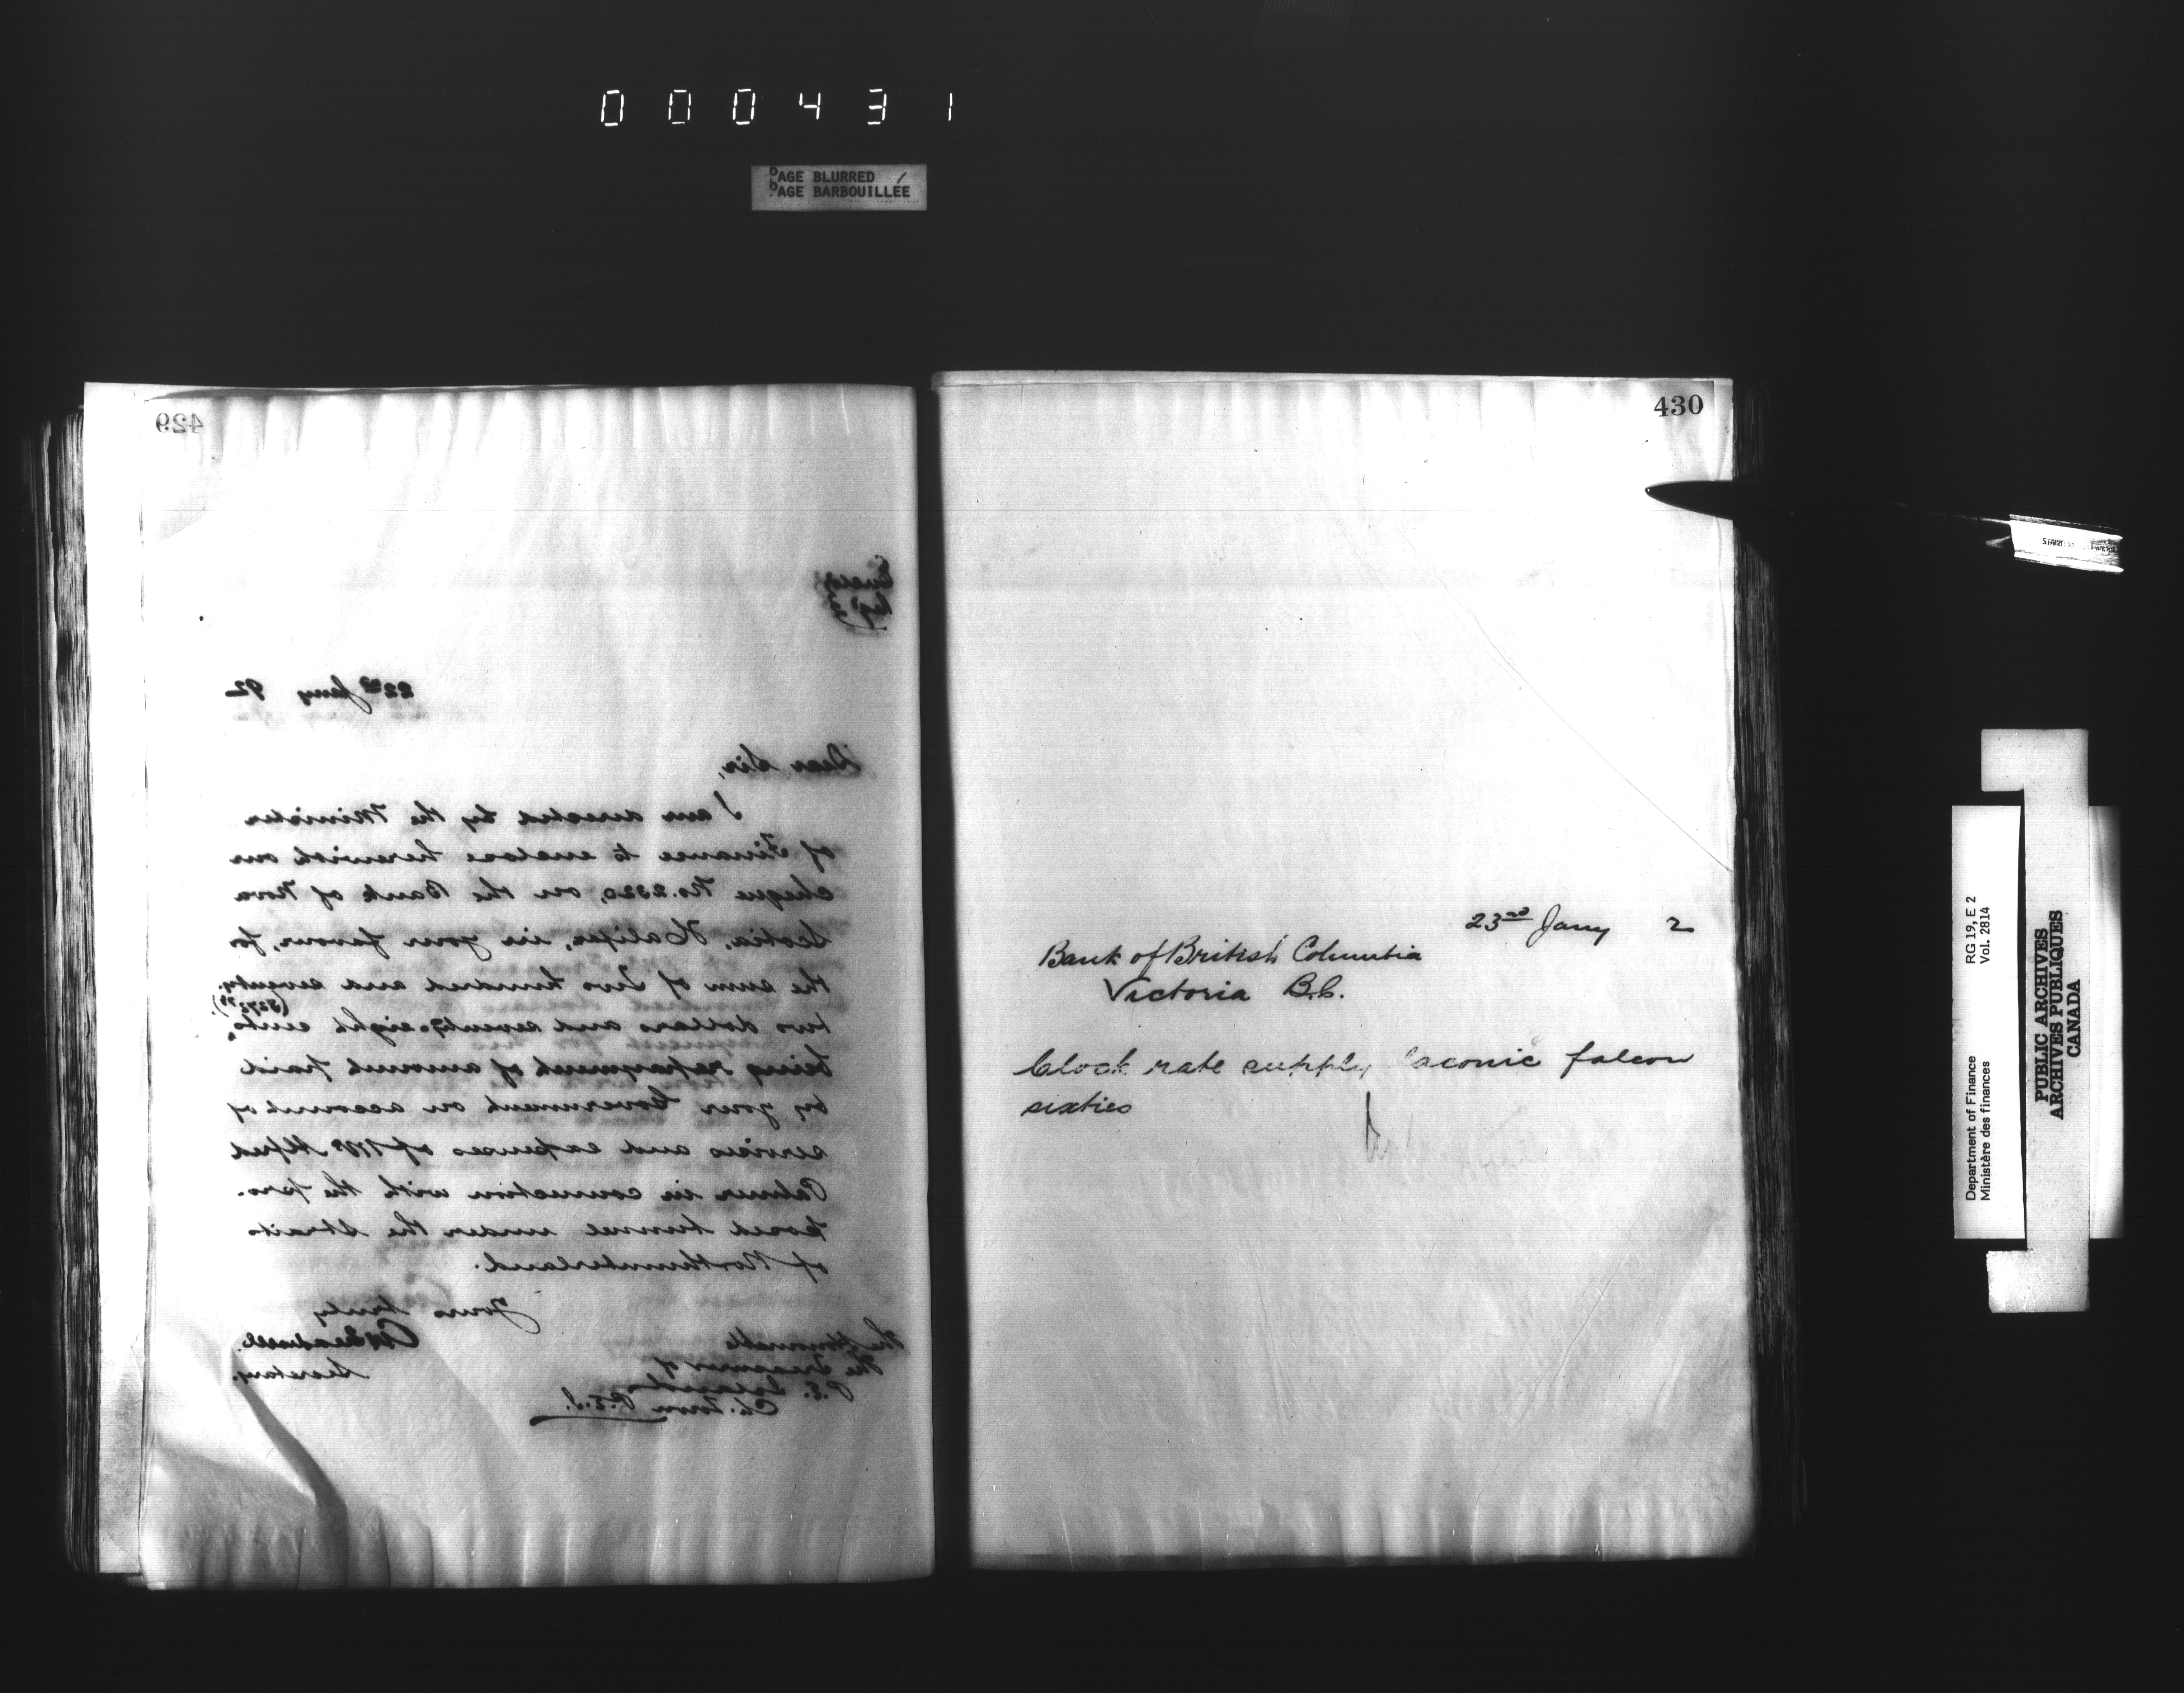 000431
PAGE BLURRED
PAGE BARBOUILLÉE
429
22nd Jany 92
Dear Sir,
I am directed by the Minister
of Finance to enclose herewith our
cheque No. 2320, on the Bank of Nova
Scotia, Halifax, in your favour, for
the sum of Two hundred and seventy-
two dollars and seventy-eight cents,
($272.78)
being repayment of amount paid
by your Government on account of
services and expenses of Mr Alfred
Palmer in connection with the pro-
posed tunnel under the Straits
of Northumberland.
Yours truly
The Honourable
The Treasurer of
Secretary.
P.E. Island
Ch. Town P.E.I.
430
23rd Jany 2
Bank of British Columbia
Victoria B.C.
Clock rate supply laconic falcon
sixties
Department of Finance RG 19, E 2
Ministère des finances Vol. 2814
PUBLIC ARCHIVES
ARCHIVES PUBLIQUES
CANADA